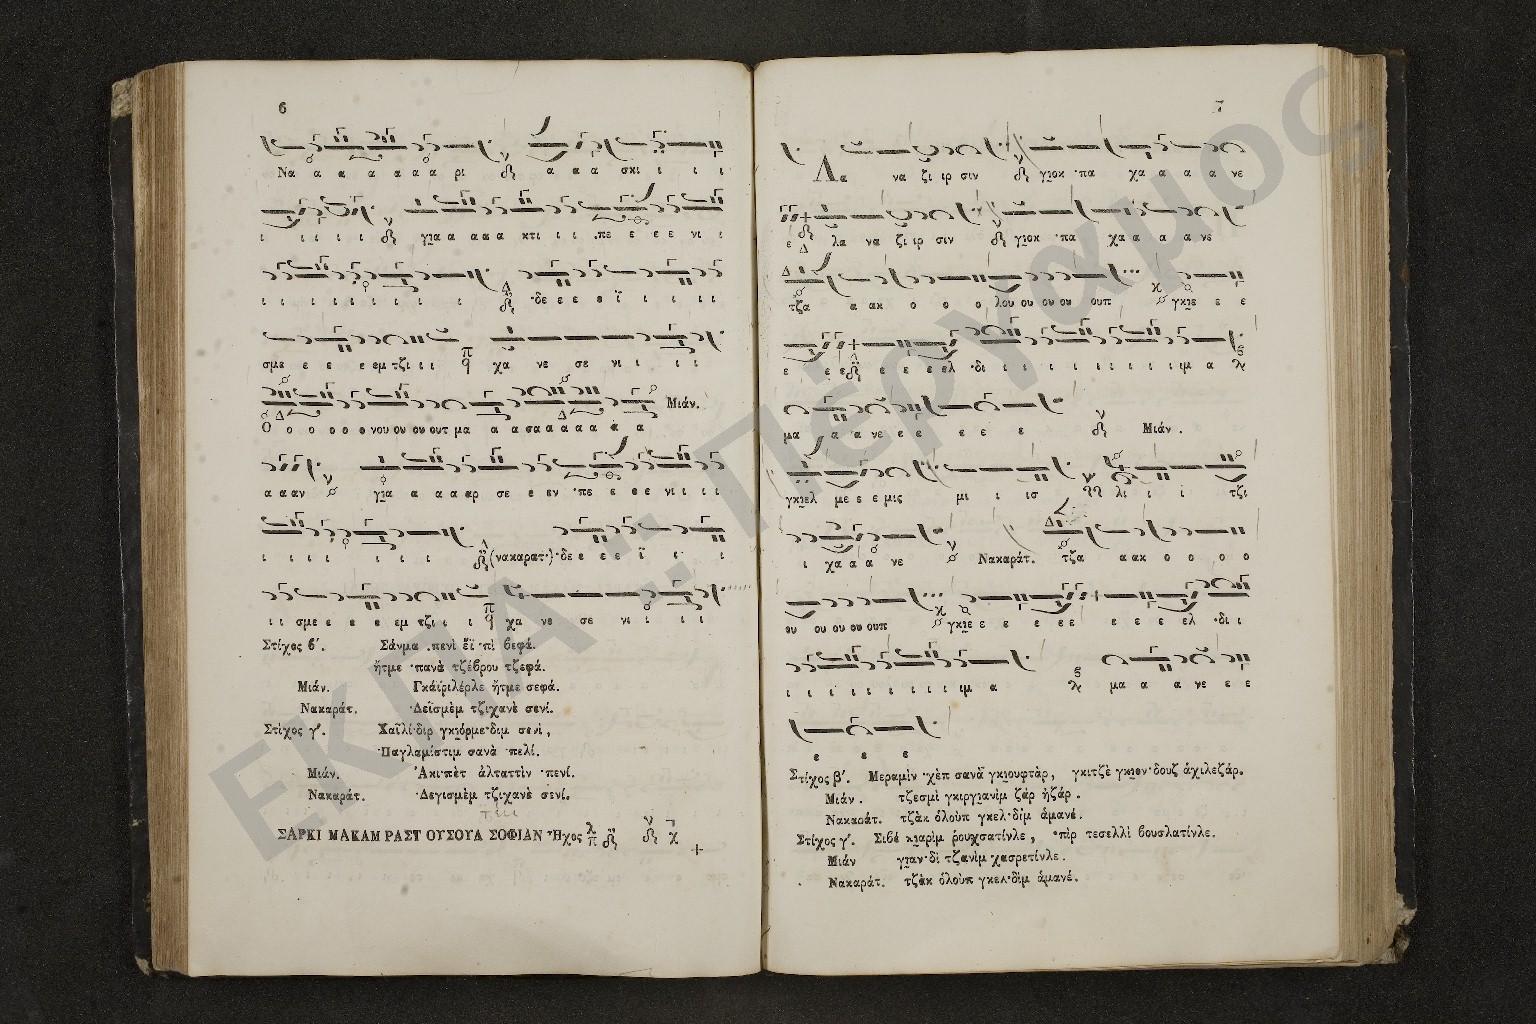 6
Να α α α α α α ρι α α α σκι ι ι ι
ι ι ι ι ι για α α α α α κτι ι ι ·πε ε ε ε νι ι
ι ι ι ι ι ι ι ι ι ·δε ε ε ε ϊ ι ι ι ι
σμε ε ε ε ε εμ τζι ι ι χα νε σε νι ι ι ι
Μιάν.
Ο ο ο ο ο ο νου ου ου ουτ μα α α σα α α α α α α
α α αν για α α α αρ σε ε εν ·πε ε ε ε νι ι ι ι
ι ι ι ι ι ι ι (νακαρατ·) ·δε ε ε ε ϊ ι ι ι
ι ι σμε ε ε ε εμ τζι ι ι χα νε σε νι ι ι ι
Στίχος β΄. Σάνμα ·πενὶ ἔϊ ·πὶ βεφά.
ἤτμε ·πανὰ τζέβρου τζεφά.
Μιάν. Γκάϊριλέρλε ἤτμε σεφά.
Νακαράτ. ·Δεϊσμὲμ τζιχανὲ σενί.
Στίχος γ΄. Χαϊλί·διρ γκιόρμε·διμ σενὶ,
·Παγλαμίστιμ σανὰ ·πελί.
Μιάν. Ἀκι·πὲτ ἀλταττὶν ·πενί.
Νακαράτ. ·Δεγισμὲμ τζιχανὲ σενί.
ΣΑΡΚΙ ΜΑΚΑΜ ΡΑΣΤ ΟΥΣΟΥΛ ΣΟΦΙΑΝ Ἦχος
7
Λα να ζι ιρ σιν γιοκ ·πα χα α α α νε
ε λα να ζι ιρ σιν γιοκ ·πα χα α α α νε
τζα α ακ ο ο ο λου ου ου ου ουπ γκιε ε ε
ε ε ε ε ε ε ελ ·δι ι ι ι ι ι ι ι ι ιμ α
μα α α νε ε ε ε ε ε Μιάν.
γκιελ με ε ε μις μι ι ισ λι ι ι τζι
ι χα α α νε Νακαράτ. τζα α ακ ο ο ο ο
ου ου ου ου ουπ γκιε ε ε ε ε ε ε ε ε ελ ·δι ι
ι ι ι ι ι ι ι ι ιμ α μα α α νε ε ε
ε ε ε
Στίχος β΄. Μεραμὶν ·χὲπ σανᾶ γκιουφτὰρ, γκιτζὲ γκιον·δουζ ἀχιλεζάρ.
Μιάν. τζεσμὶ γκιργιανὶμ ζὰρ ἠζάρ.
Νακαράτ. τζὰκ ὀλοὺπ γκελ·δὶμ ἀμανέ.
Στίχος γ΄. Σιβέ κιαρὶμ ῥουχσατίνλε, ·πὶρ τεσελλὶ βουσλατίνλε.
Μιάν γιαν·δὶ τζανὶμ ·χασρετίνλε.
Νακαράτ. τζὰκ ὀλοὺπ γκελ·δὶμ ἀμανέ.
ΕΚΠΑ :: Πέργαμος